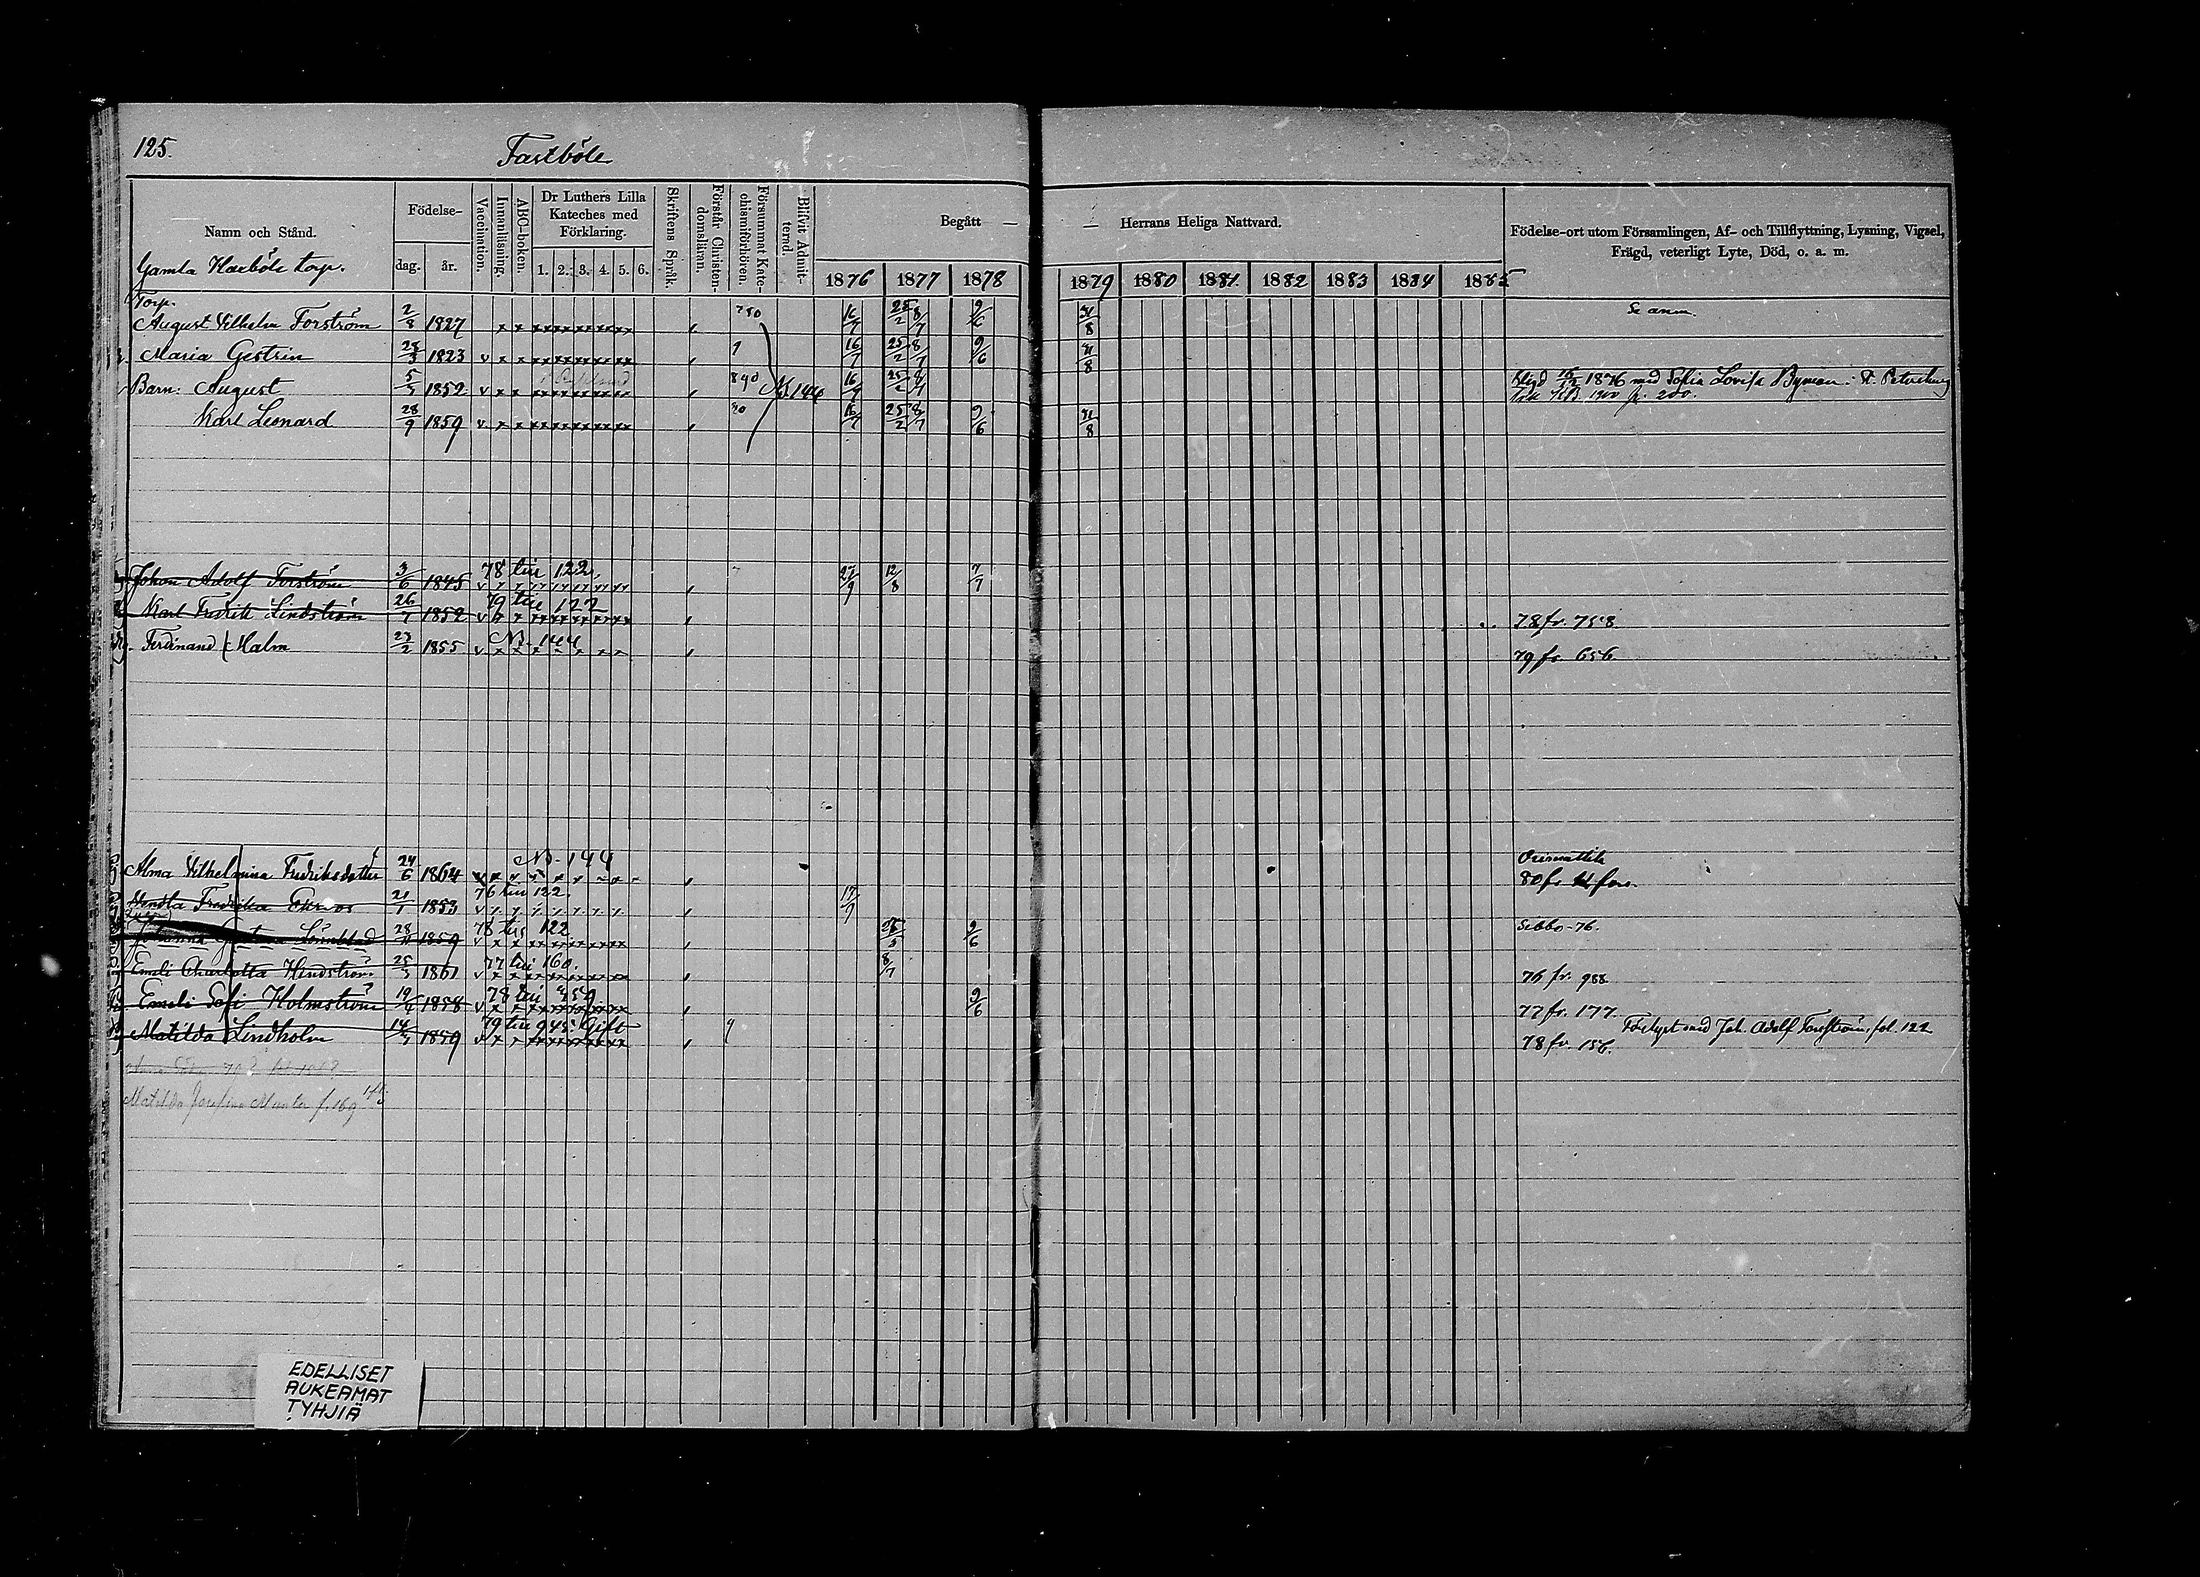 125.
Fastböle
Namn och Stånd.
Födelse-
dag. år.
Vaccination.
Innanläsning.
ABC-boken.
Dr Luthers Lilla Kateches med Förklaring.
1. 2. 3. 4. 5. 6.
Skriftens Språk.
Förstår Christendomsläran.
Försummat Katechismiförhören.
Blifvit Admitterad.
Begått — — Herrans Heliga Nattvard.
1876 1877 1878 1879 1880 1881 1882 1883 1884 1885
Födelse-ort utom Församlingen, Af- och Tillflyttning, Lysning, Vigsel,
Frägd, veterligt Lyte, Död, o. a. m.
Gamla Karböle torp.
Torp.
August Vilhelm Forström 2/8 1827 780 16/7 25/2 8/7 9/6 31/8 Se anm.
Maria Gestrin 28/3 1823 v 9 16/7 25/2 8/7 9/6 31/8
Barn: August 5/3 1852 v 890 N. 144 16/7 25/2 8/7 Vigd 16/12 1876 med Sofia Lovisa Byman i St. Petersburg
KB. 1900 p. 200.
Karl Leonard 28/9 1859 v 90 16/7 25/2 8/7 9/6 31/8
Johan Adolf Forström 3/6 1845 78 till 122 27/9 12/8 7/7
Karl Fredrik Lindström 26/7 1852 79 till 122 78 fr. 758
Ferdinand Malm 23/2 1855 N. 144 79 fr. 656
Alma Vilhelmina Fredriksdotter 24/6 1864 N. 144
80 fr
Fredrika 21/1 1853 76 till 122. 17/9
Johanna 1859 78 till 122 9/6 Sibbo-76.
Emeli Charlotta Hindström 25/3 1861 77 till 160. 8/7 76 fr. 988
Emeli Sofi Holmström 1858 78 till 459 9/6 77 fr. 177.
Matilda Lindholm 1859 79 till 945. Gift 9 78 fr. 156. Förlyst med Joh. Adolf Forström, fol. 122
Matilda Josefina f. 169
EDELLISET
AUKEAMAT
TYHJIÄ